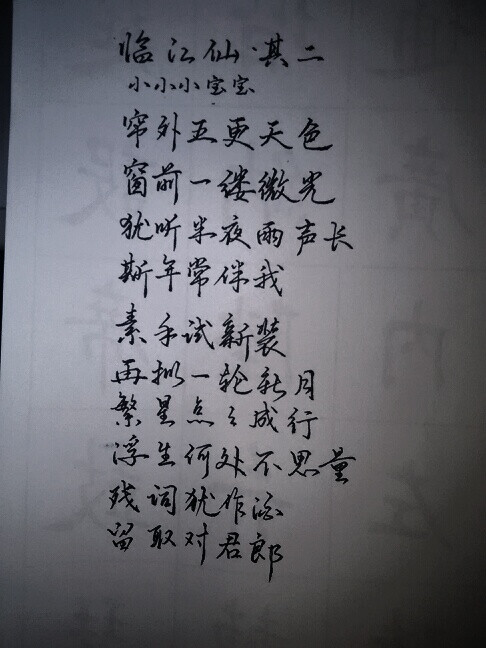 临江仙·其二
小小小宝宝
帘外五更天色
窗前一缕微光
犹听半夜雨声长
斯年常伴我
素手试新装
再拟一轮秋月
繁星点点成行
浮生何处不思量
残词犹作
留取对君郎